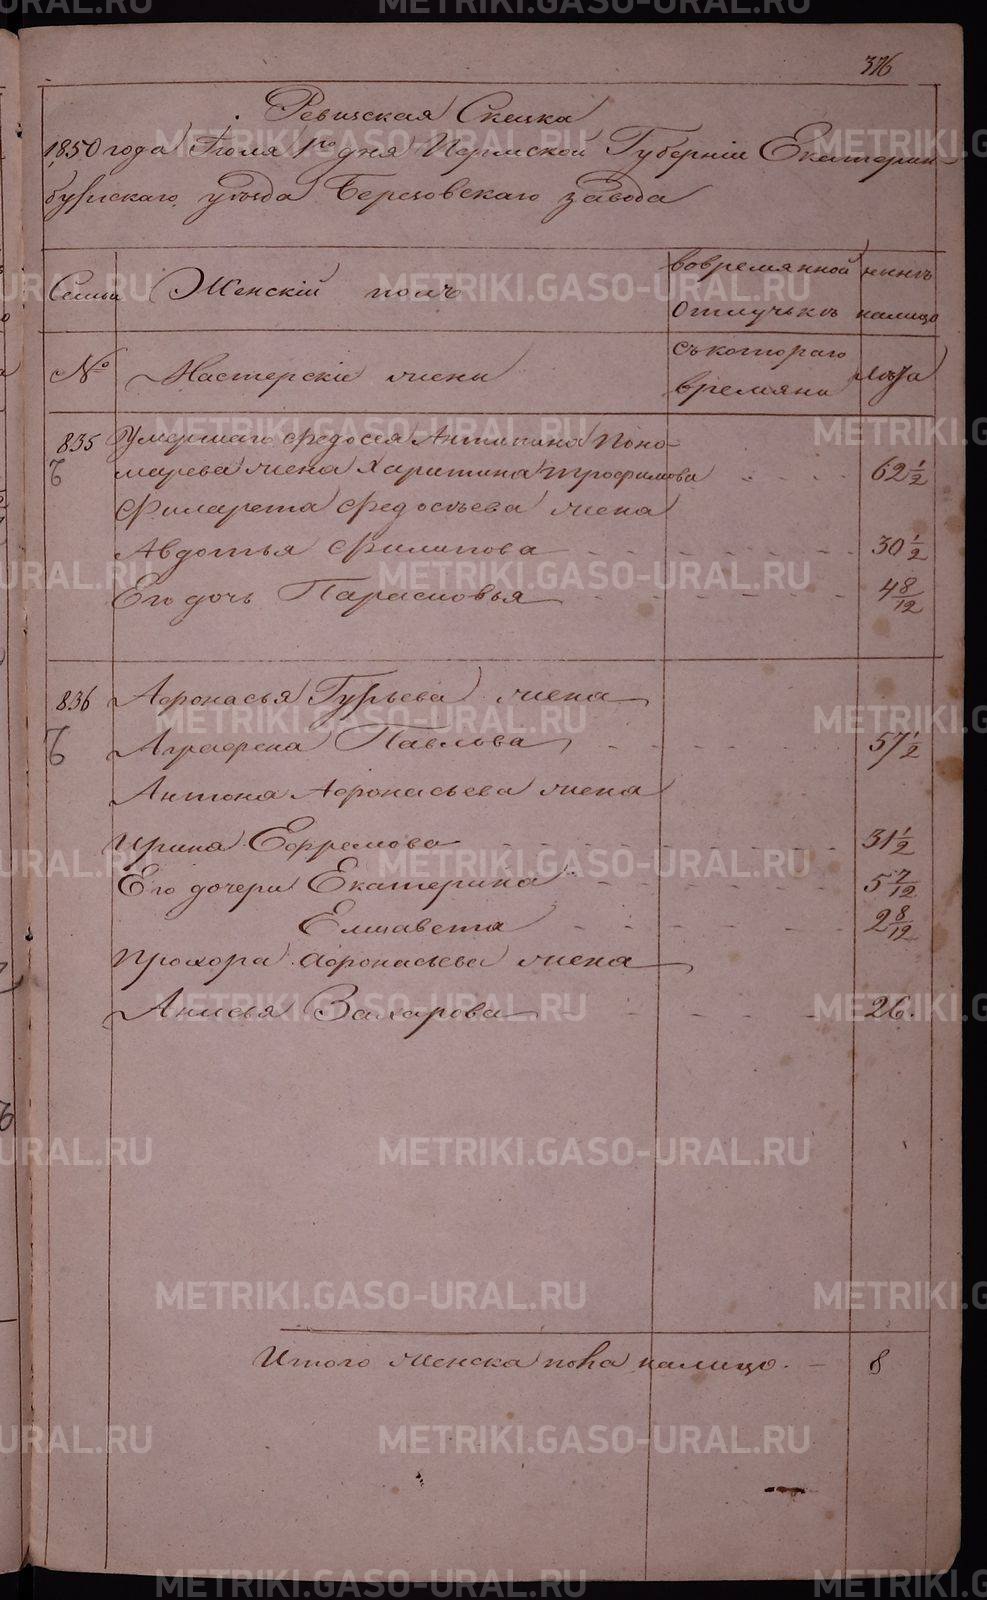 376
Ревизская Сказка
1850 года Июля 1го дня Пермской Губерніи Екатерин-
бургскаго уезда Березовскаго завода
Семьи Женскій полъ
вовремянной
отлучькъ
ныньъ
налицо
№ Мастерскіе жены
съкотораго
времяни
Лъта
835 Умершаго Федосея Антипина Поно-
марева жена Харитина Трофимова 62 1/2
Филарета Федосъева жена
Авдотья Филипова 30 1/2
Его дочь Парасковья 4 8/12
836 Афонасья Гурьева жена
Аграфена Павлова 57 1/2
Антона Афонасьева жена
Ирина Ефремова 31 1/2
Его дочери Екатерина 5 7/12
Елисавета 2 8/12
Прохора Афонасьева жена
Анисья Захарова 26.
Итого женска пола налицо. 8
METRIKI.GASO-URAL.RU